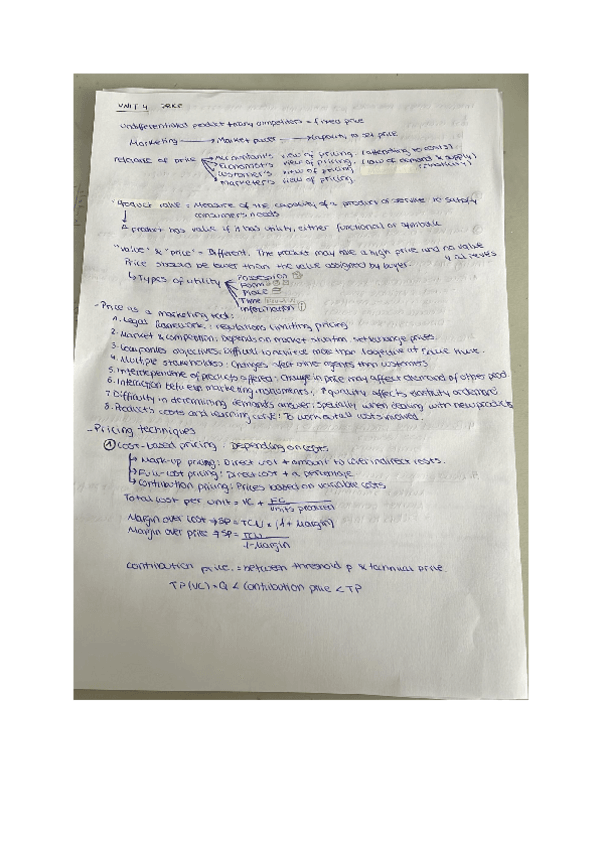 UNIT 4 PRICE
Undifferentiated product + many competitors = fixed price
Marketing → Market power → capacity to set price
Relevance of price Accountant's view of pricing. (attending to costs).
Economist's view of pricing. (law of demand & supply)
Customer's view of pricing
Marketer's view of pricing.
Product value: Measure of the capacity of a product or service to satisfy
consumers needs
A product has value if it has utility, either functional or symbolic
"value" & "price" = Different. The product may have a high price and no value
Price should be lower than the value assigned by buyer.
↳ Types of utility Possession
Form
Place
Time
Information
- Price as a marketing tool:
1. Legal framework: regulations limiting pricing
2. Market & competition: Depends on market situation set/change prices.
3. Companies objectives: Difficult to achieve more than 1 objective at same time.
4. Multiple stakeholders: Changes affect other agents than customers
5. Interdependence of products offered: Change in price may affect demand of other prod.
6. Interaction between marketing instruments: ↑ quality affects elasticity of demand
7. Difficulty in determining demand's answer: Specially when dealing with new products
8. Products costs and learning curve: To work out all costs involved.
- Pricing techniques
① Cost-based pricing: Depending on costs
Mark-up pricing: Direct cost + amount to cover indirect costs.
Full-cost pricing: Direct cost + a percentage
Contribution pricing: Prices based on variable costs
Total cost per unit = VC + FC / units produced
Margin over cost → SP = TCU × (1 + Margin)
Margin over price → SP = TCU / 1-Margin
Contribution price = between threshold p & technical price
TP (VC) × Q < Contribution price < TP